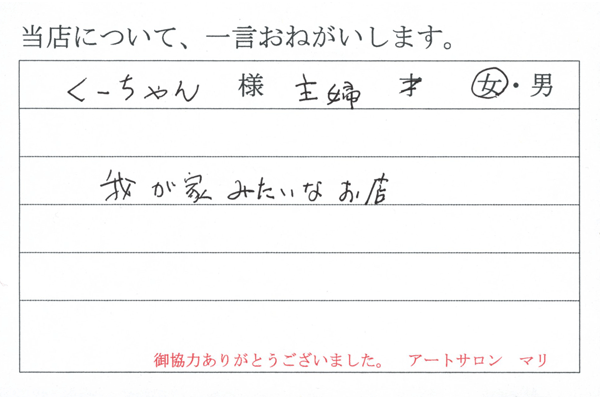 当店について、一言おねがいします。
くーちゃん 様 主婦 才 女・男
我が家みたいなお店
御協力ありがとうございました。 アートサロン マリ